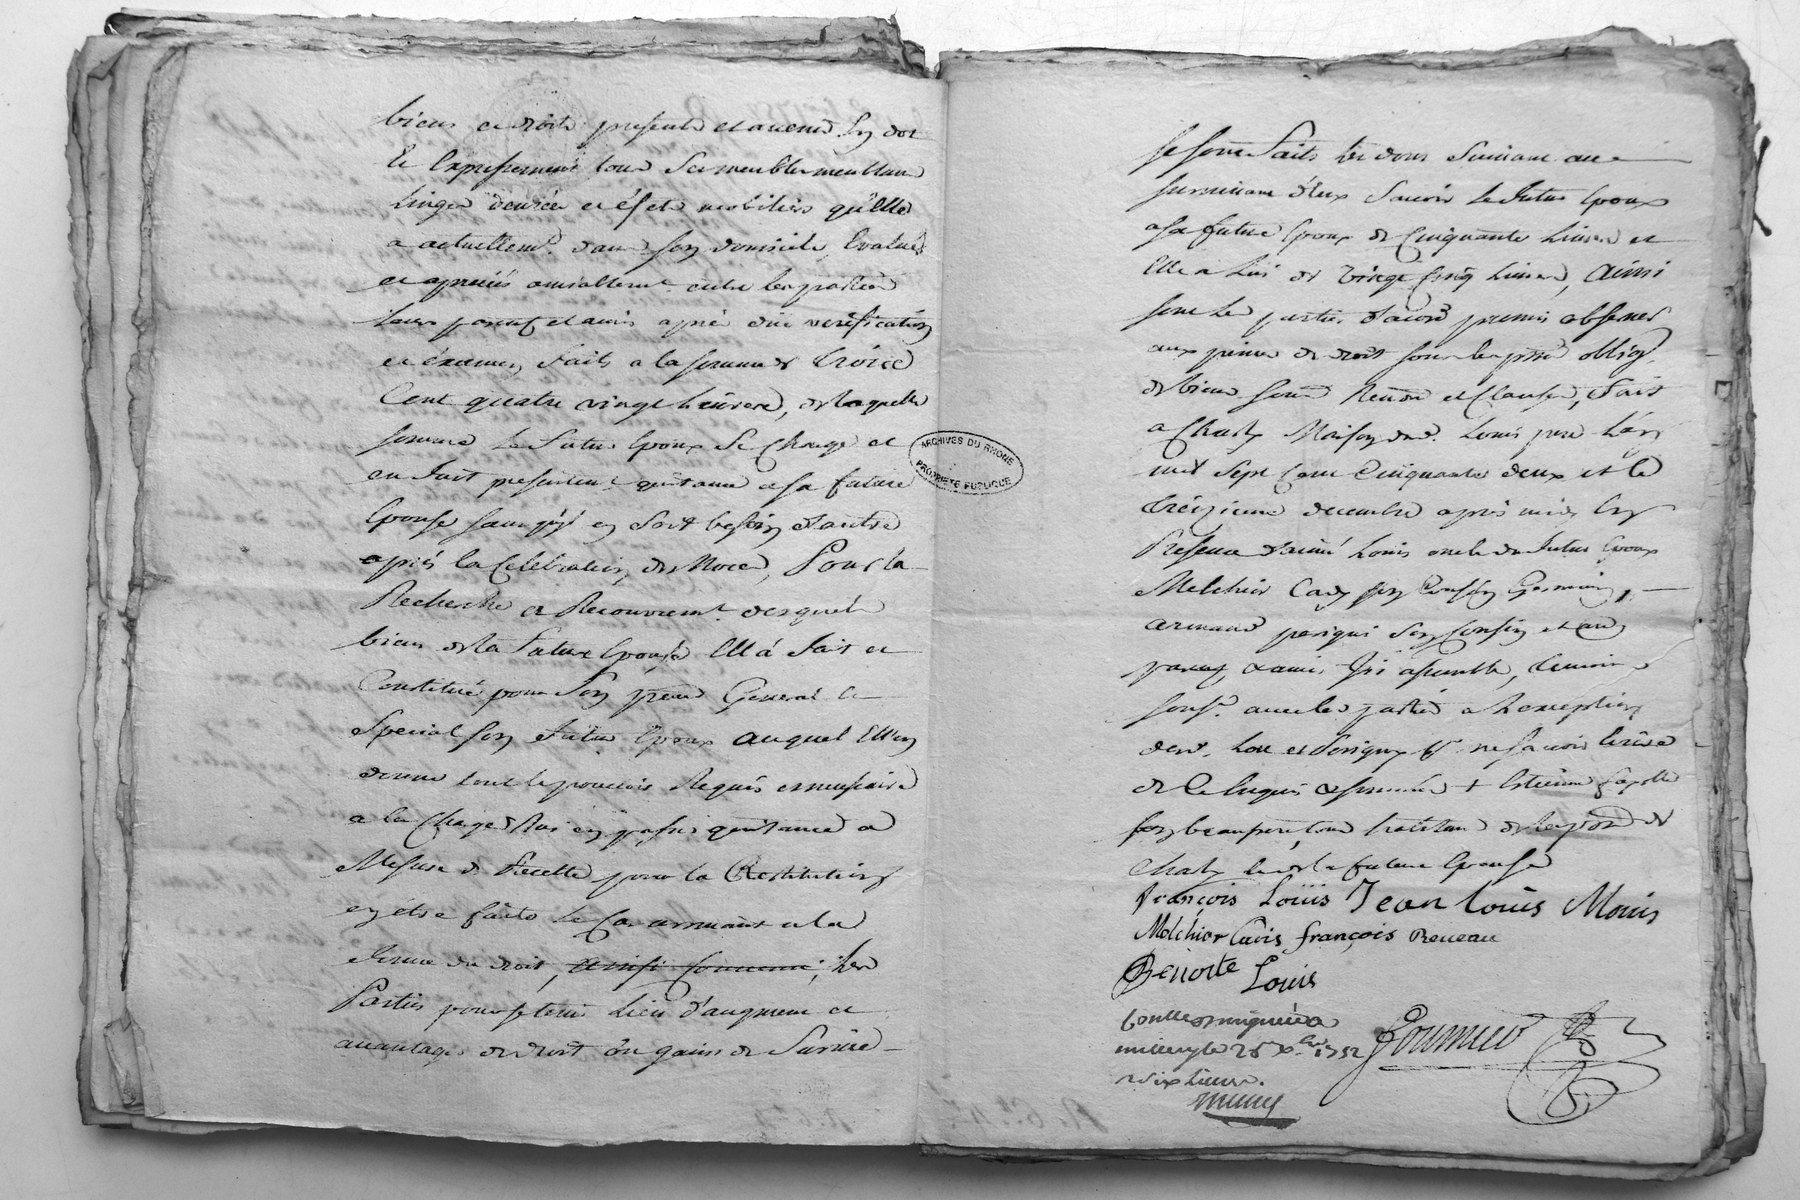 biens et droits presents et avenir En dot
Et Expressement tous ses meubles meublans
Linges denrées et éfets mobiliers qu'Elle
a actuellemt. dans son domicile, Evalués
et apretiés amiablement entre les parties
Leurs parents et amis après düe verification
et éxamen faits a la somme de Troise
Cent quatre vingt Livres, de laquelle
somme le futur Epoux se Charge et
en fait presentemt. quittance a sa future
Epouse sans qu'il en soit besoin d'autre
après la Celebration des Noces, Pour la
Recherche et Recouvremt. desquels
biens de la future Epouse Elle a fait et
Constitué pour son procur General et
Special son futur Epoux auquel Elle en
donne tout le pouvoir Requis et necessaire
a la Charge d'en passer quittance a
Mesure de Recette pour la Restitution
en être faite le Cas arrivant a la
forme du droit, ainsi Convenu, Les
Parties pour se tenir Lieu d'augment et
avantages de droit ou gains de Survie
se sont faits les dons Suivant au
survivant d'Eux Savoir le futur Epoux
a sa future Epouse de Cinquante Livres et
Elle a Lui de Vingt Cinq Livres, Ainsi
sont les parties d'acord promis observer
aux peines de droit sous les pnes. oblign.
de biens soumn Renon et Clauses, fait
a Charly Maison dud. Louis pere L'an
mil Sept Cent Cinquante deux et le
treizieme decembre après midy En
Presence d'aimé Louis oncle du futur Epoux
Melchior Cavis son Cousin Germain,
armand perigni son Cousin et aus
parents et amis Ici assemblé, temoins
sousn. avec les parties a l'exception
desd. Lou et Perigny pr. ne savoir Ecrire
de Ce Enquis et sommés + Estienne fayolle
son beaupere, tous habitans de la psse de
Charly led. de la future Epouse
François Loüis Jean loüis Mouis
Melchior Cavis françois Reveau
Benoite Louis
Controllé a
millery le 26 Xbre 1752
Fournier